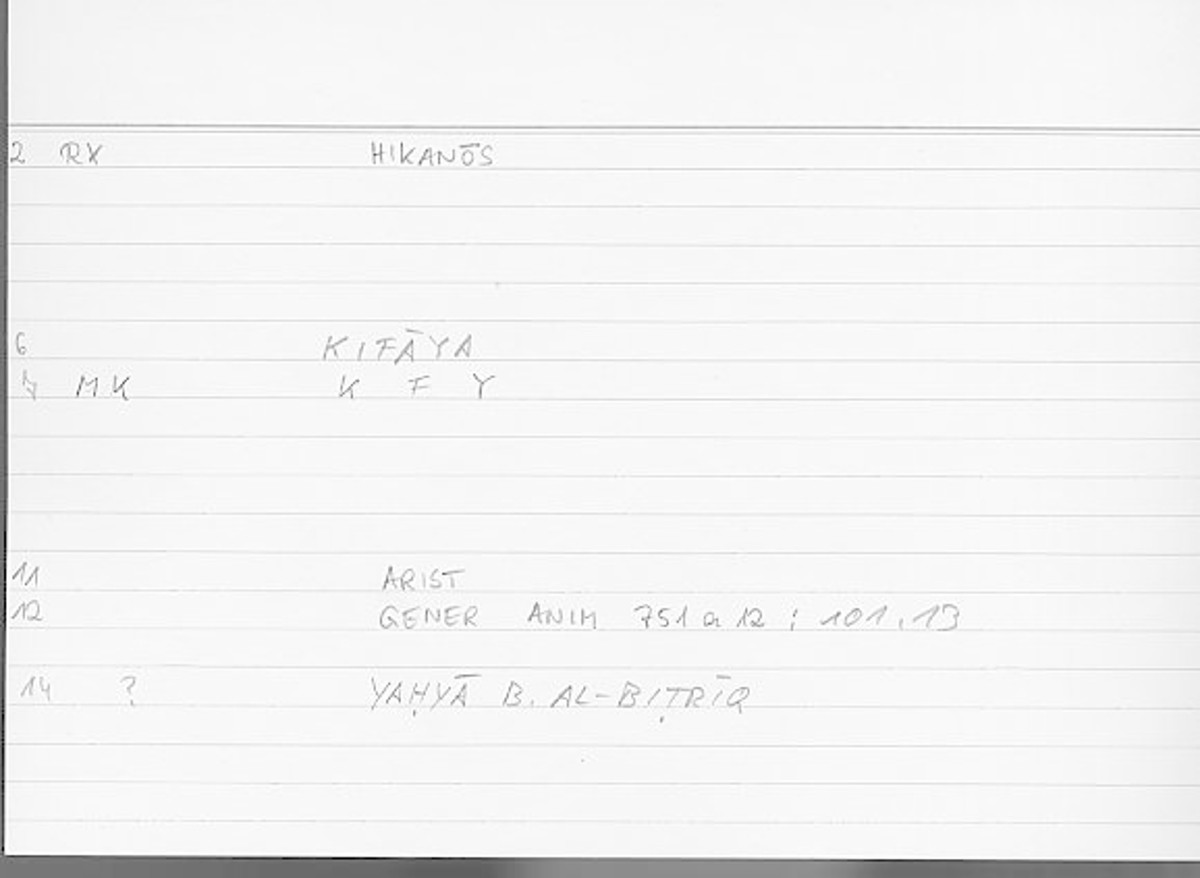 2 RX HIKANŌS
6 KIFĀYA
7 MK K F Y
11 ARIST
12 GENER ANIM 751 a 12 ; 101,13
14 ? YAḤYĀ B. AL-BIṬRĪQ